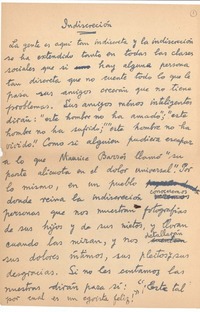 1
Indiscreción
La gente es aquí tan indiscreta y la indiscreción
se ha extendido tanto en todas las clases
sociales que si hay alguna persona
tan discreta que no cuente todo lo que le
pasa sus amigos creerán que no tiene
problemas. Sus amigos menos inteligentes
dirán: "este hombre no ha amado"; "este
hombre no ha sufrido"; "este hombre no ha
vivido". Como si alguien pudiera escapar
a lo que Maurice Barrés llamó "su
parte alícuota en el dolor universal". Por
lo mismo, en un pueblo
donde reina la indiscreción
personas que nos muestran fotografías
de sus hijos y de sus nietos, y lloran
cuando las miran, y nos detallarán
sus dolores íntimos, sus pleitos, sus
desgracias. Si no les contamos las
nuestras dirán para sí: "Este tal
por cual es un egoísta feliz".